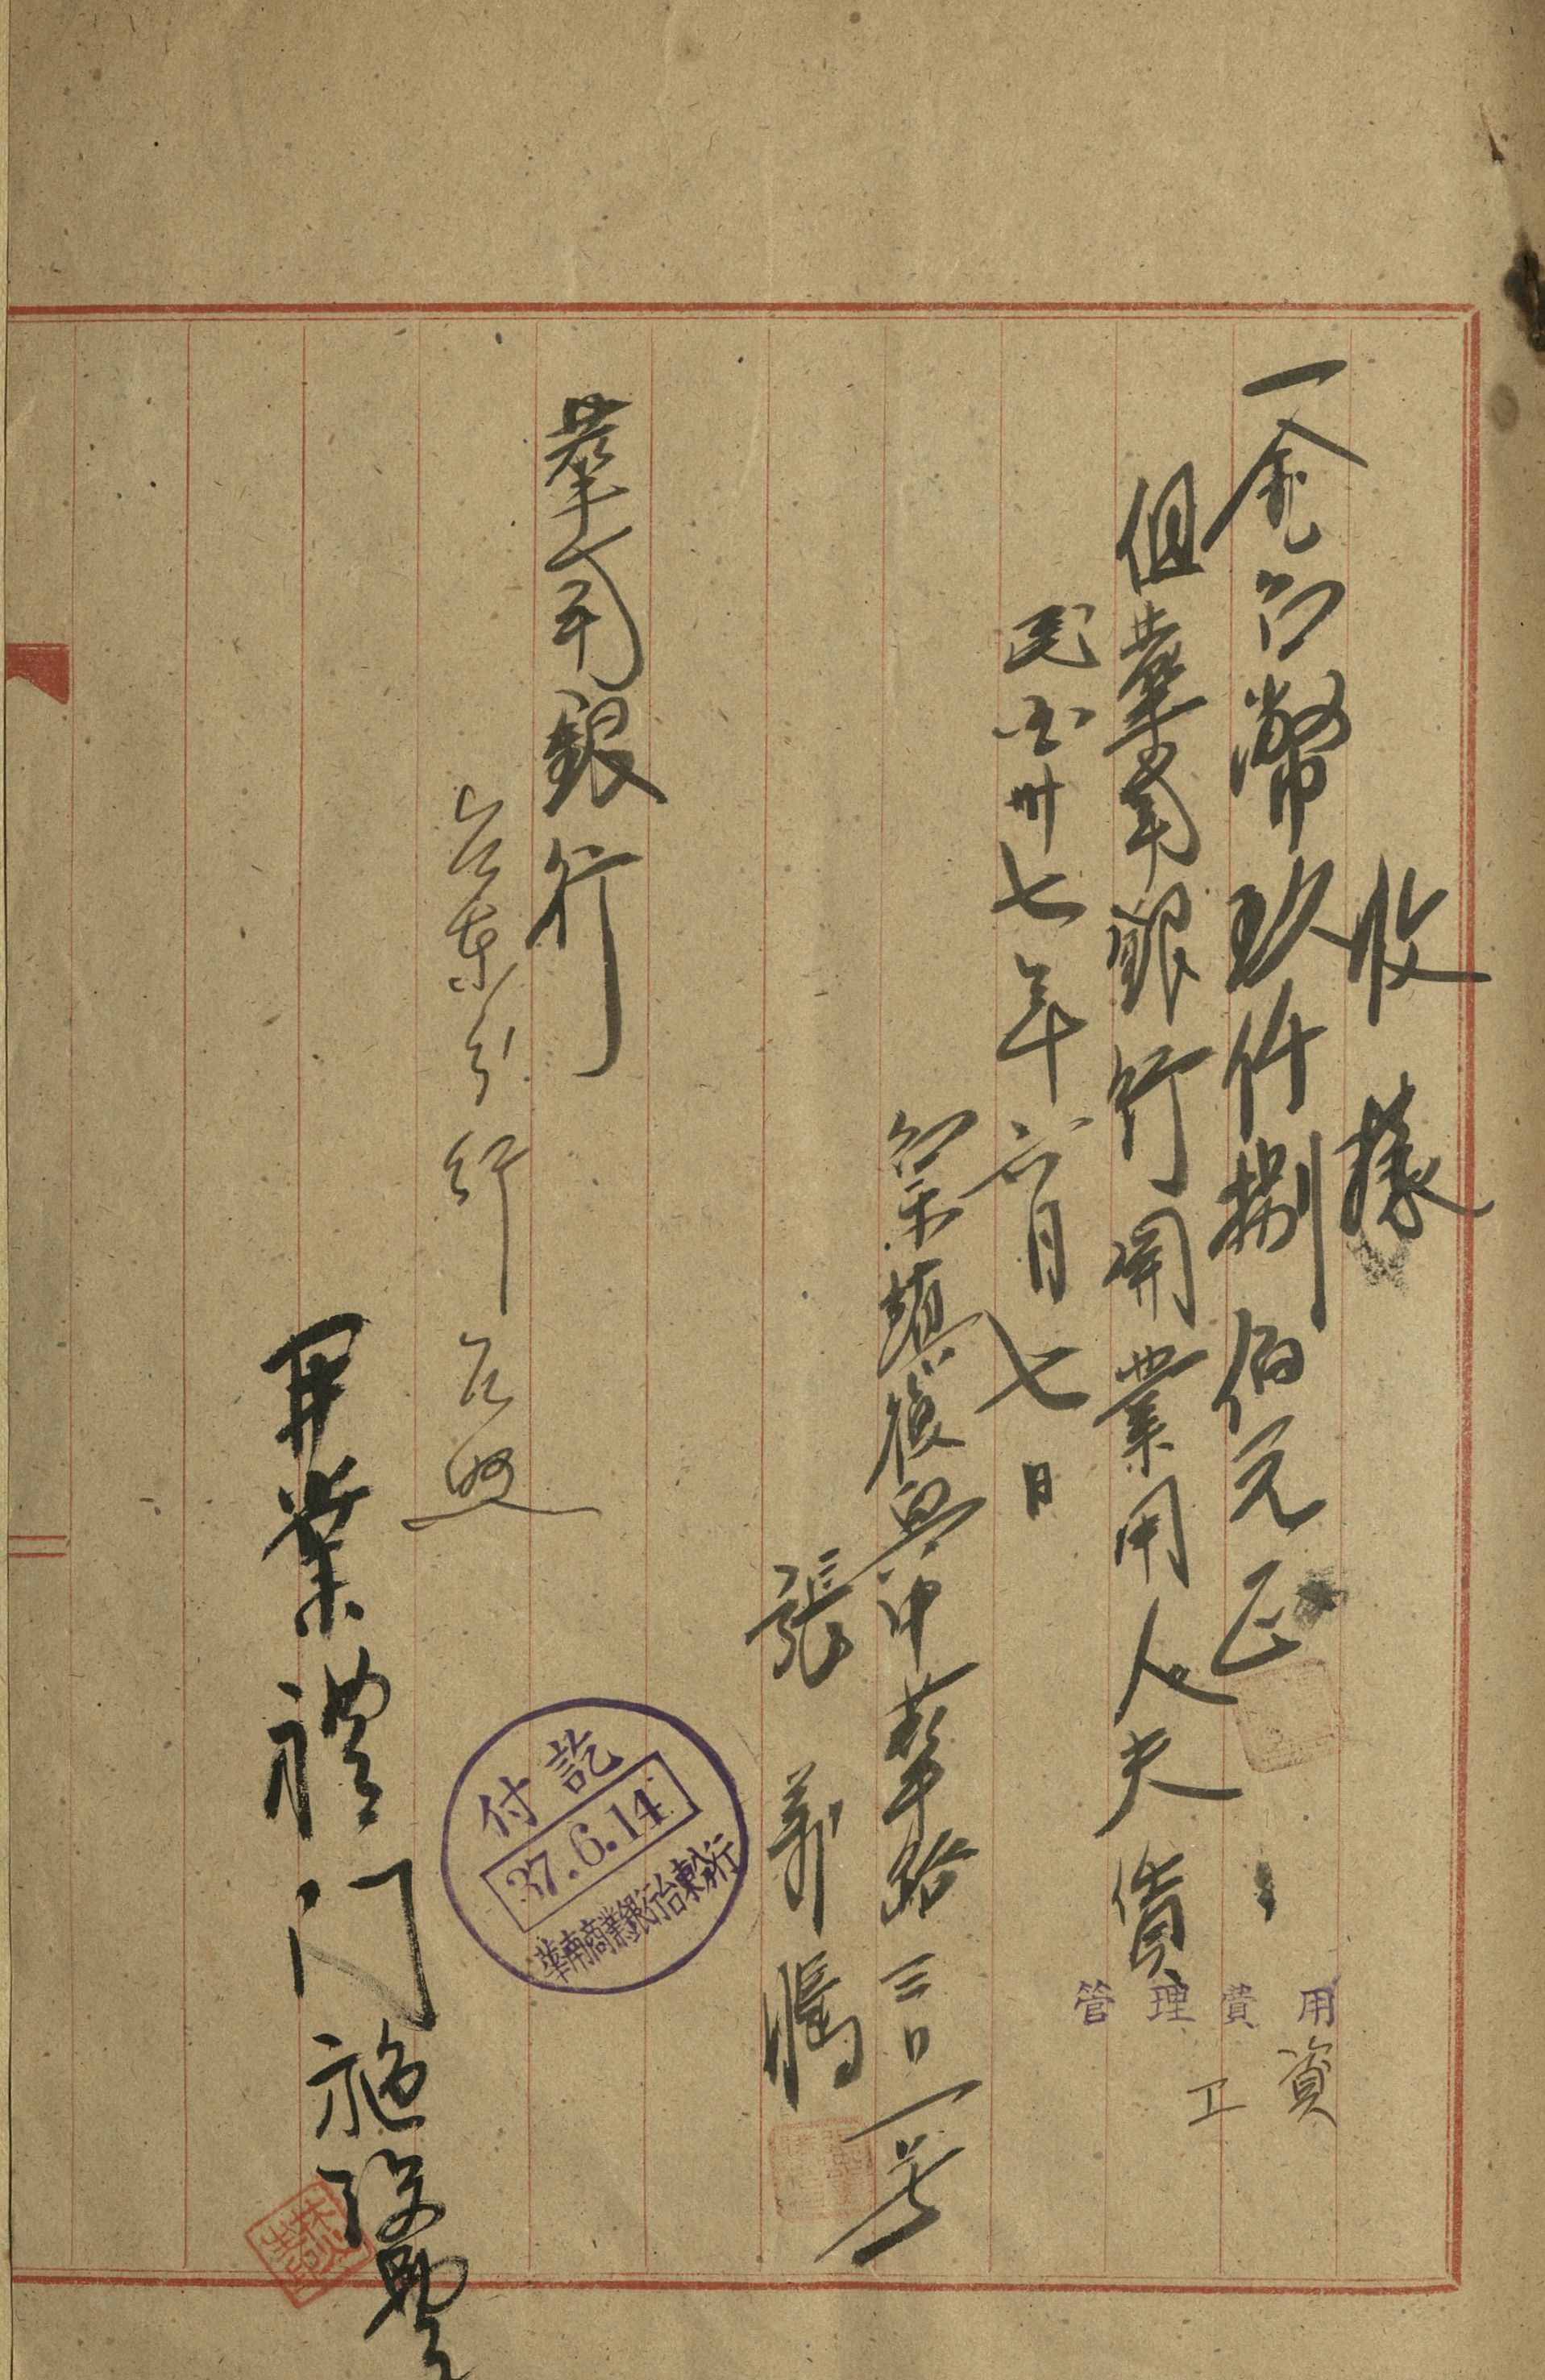 收據
一金台幣玖仟捌佰元正
但華南銀行開業用人夫賃
民國卅七年六月七日
台東鎮復興中華路三
張義
華南銀行
台東分行 台照
開業禮門施設
付訖
37.6.14
華南商業銀行台東分行
管理費用
工資